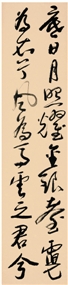 底日月照耀金銀臺霓
為衣兮風為馬雲之君兮